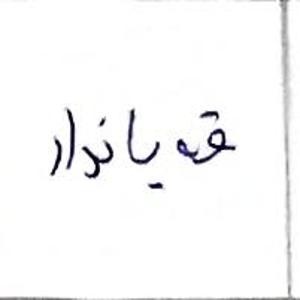 قه یاندار